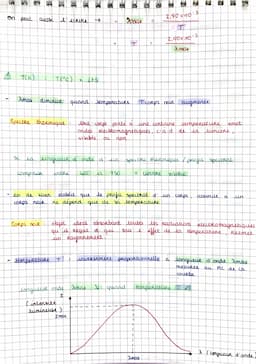 On peut aussi l'écrire → λmax = 2,90 × 10⁻³ / T
T = 2,90 × 10⁻³ / λmax
⚠ T(K) = T(°C) + 273
- λmax diminue quand température T corps noir augmente
Spectre thermique : tout corps porté à une certaine température, émet
ondes électromagnétiques, c.à.d de la lumière,
visible ou non
Si la longueur d'onde d'un spectre thermique / profil spectral
comprise entre 400 et 750 = lumière visible
- Loi de Wien établit que le profil spectral d'un corps assimilé à un
corps noir ne dépend que de la température
Corps noir : objet idéal absorbant toutes les radiations électromagnétiques
qu'il reçoit et qui sous l'effet de la température, réémet
un rayonnement
- Température T : inversement proportionnelle à longueur d'onde λmax
mesurée au
courbe
longueur onde λmax ↘ quand température ↗
I
(intensité
lumineuse)
Imax
λmax
λ (longueur d'onde)